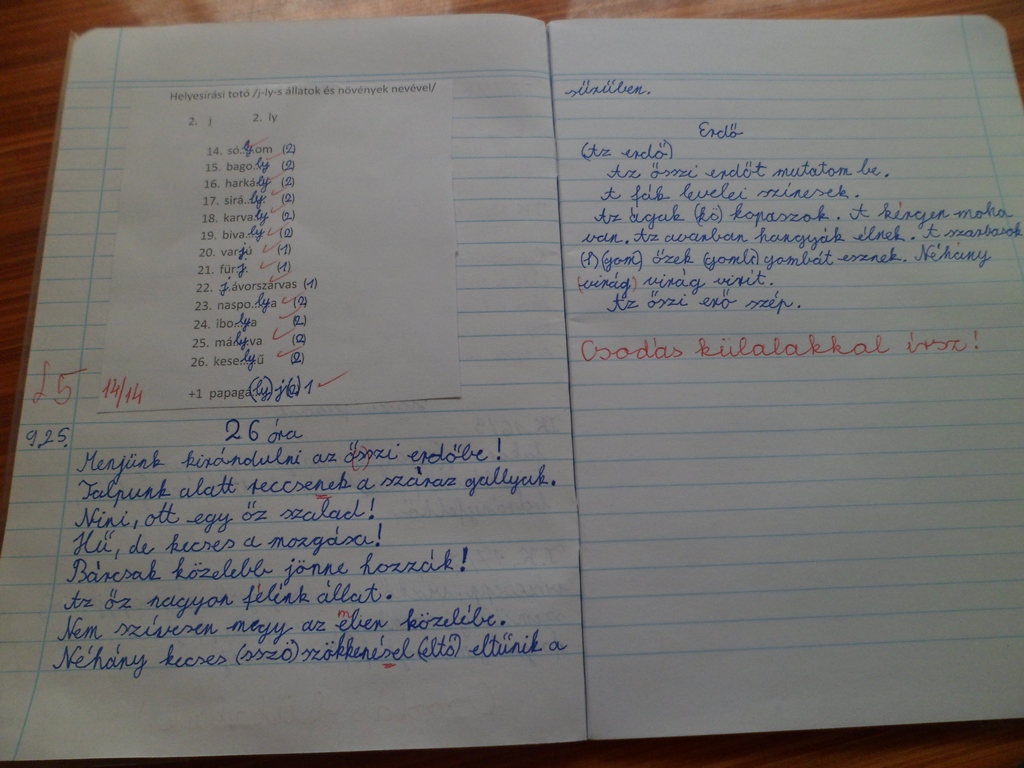 Helyesírási totó /j-ly-s állatok és növények nevével/
2. j 2. ly
14. só..ly.om (2)
15. bago.ly (2)
16. harká.ly (2)
17. sirá..ly. (2)
18. karva.ly (2)
19. biva.ly (2)
20. varjú (1)
21. fürj. (1)
22. j.ávorszarvas (1)
23. naspo.ly.a (2)
24. ibo.ly.a (2)
25. mály.va (2)
26. kese.ly.ű (2)
+1 papagá.(ly) j (2) 1
5 14/14
9.25. 26 óra
Menjünk kirándulni az ős(s)zi erdőbe!
Talpunk alatt reccsenek a száraz gallyak.
Nini, ott egy őz szalad!
Hű, de kecses a mozgása!
Bárcsak közelebb jönne hozzák!
Az őz nagyon félénk állat.
Nem szívesen megy az eber közelébe.
Néhány kecses (sszö) szökkenésel (eltő) eltűnik a
sűrűben.
Erdő
(Az erdő)
Az őszi erdőt mutatom be.
A fák levelei színesek.
Az ágak (kö) kopaszok. A kérgen moha
van. Az avarban hangyák élnek. A szarvasok
(gom) őzek (gombi) gombát esznek. Néhány
(virág) virág virít.
Az őszi erő szép.
Csodás külalakkal írsz!